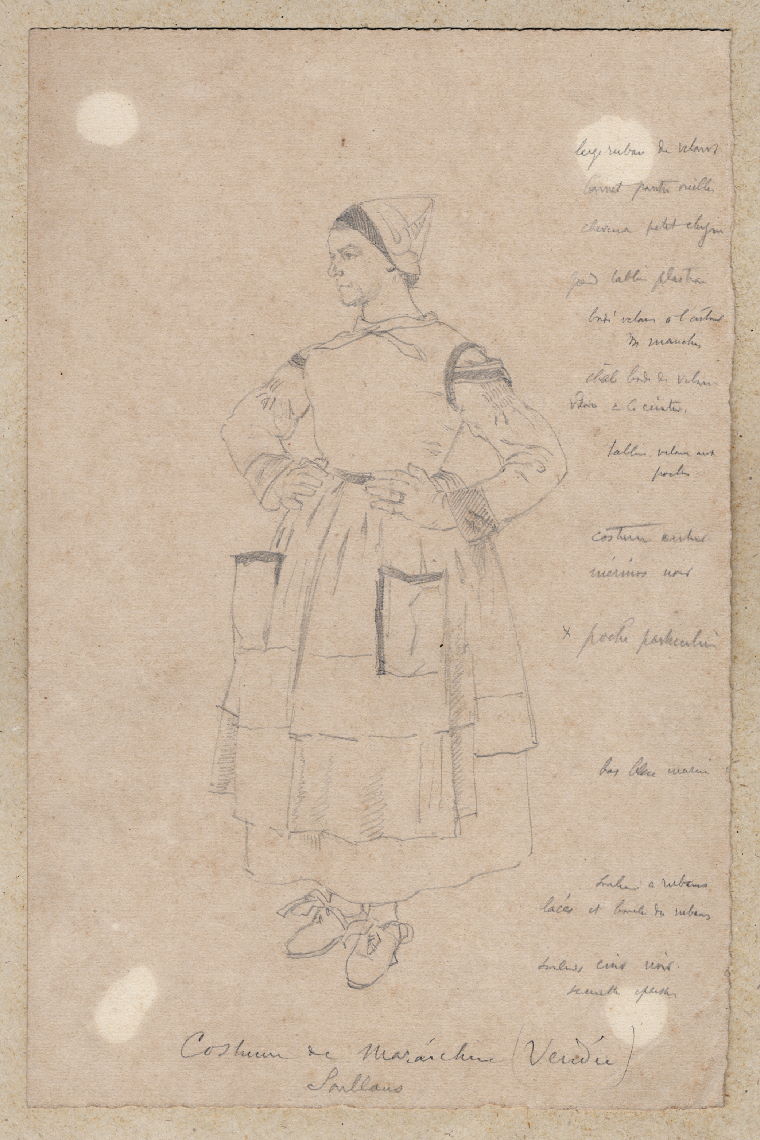 large ruban de velours
bonnet pointu oreilles
cheveux petit chignon
grand tablier plastron
bordé velours à l'entour
des manches
bordé de velours
à la ceinture.
tablier velours aux
poches
costume entier
mérinos noir
x poche particulière
bas bleu marin
souliers à rubans
lacés et boucle de rubans
souliers cirés noir.
semelle épaisse
Costume de Maraîchine (Vendée)
Soullans